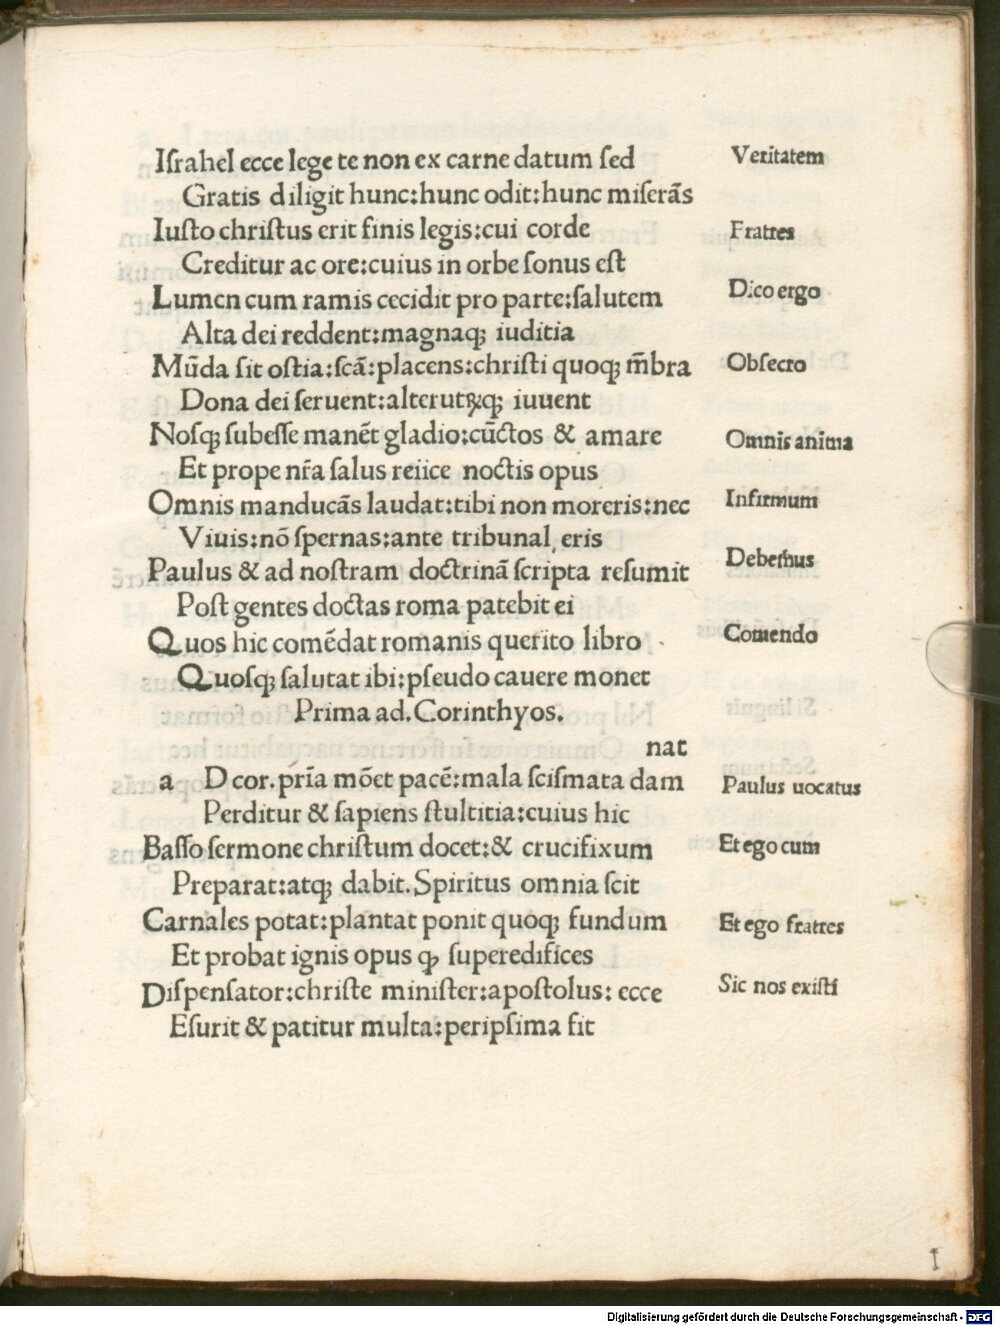 Iſrahel ecce lege te non ex carne datum ſed Veritatem
Gratis diligit hunc:hunc odit:hunc miſerãs
Iuſto chriſtus erit finis legis:cui corde Fratres
Creditur ac ore:cuius in orbe ſonus eſt
Lumen cum ramis cecidit pro parte:ſalutem Dico ergo
Alta dei reddent:magnaqꝫ iuditia
Mũda ſit oſtia:ſcã:placens:chriſti quoqꝫ m̃bra Obſecro
Dona dei ſeruent:alterutꝝqꝫ iuuent
Noſqꝫ ſubeſſe manẽt gladio:cũctos & amare Omnis anima
Et prope nr̃a ſalus reiice noctis opus
Omnis manducãs laudat:tibi non moreris:nec Infirmum
Viuis:nõ ſpernas:ante tribunal eris
Paulus & ad noſtram doctrinã ſcripta reſumit Debem̃us
Poſt gentes doctas roma patebit ei
Quos hic comẽdat romanis querito libro Comendo
Quoſqꝫ ſalutat ibi:pſeudo cauere monet
Prima ad.Corinthyos.
nat
a D cor.pr̃ia mõet pacẽ:mala ſciſmata dam Paulus uocatus
Perditur & ſapiens ſtultitia:cuius hic
Baſſo ſermone chriſtum docet:& crucifixum Et ego cum
Preparat:atqꝫ dabit.Spiritus omnia ſcit
Carnales potat:plantat ponit quoqꝫ fundum Et ego fratres
Et probat ignis opus ꝙ ſuperedifices
Diſpenſator:chriſte miniſter:apoſtolus: ecce Sic nos exiſti
Eſurit & patitur multa:peripſima fit
I
Digitalisierung gefördert durch die Deutsche Forschungsgemeinschaft - DFG